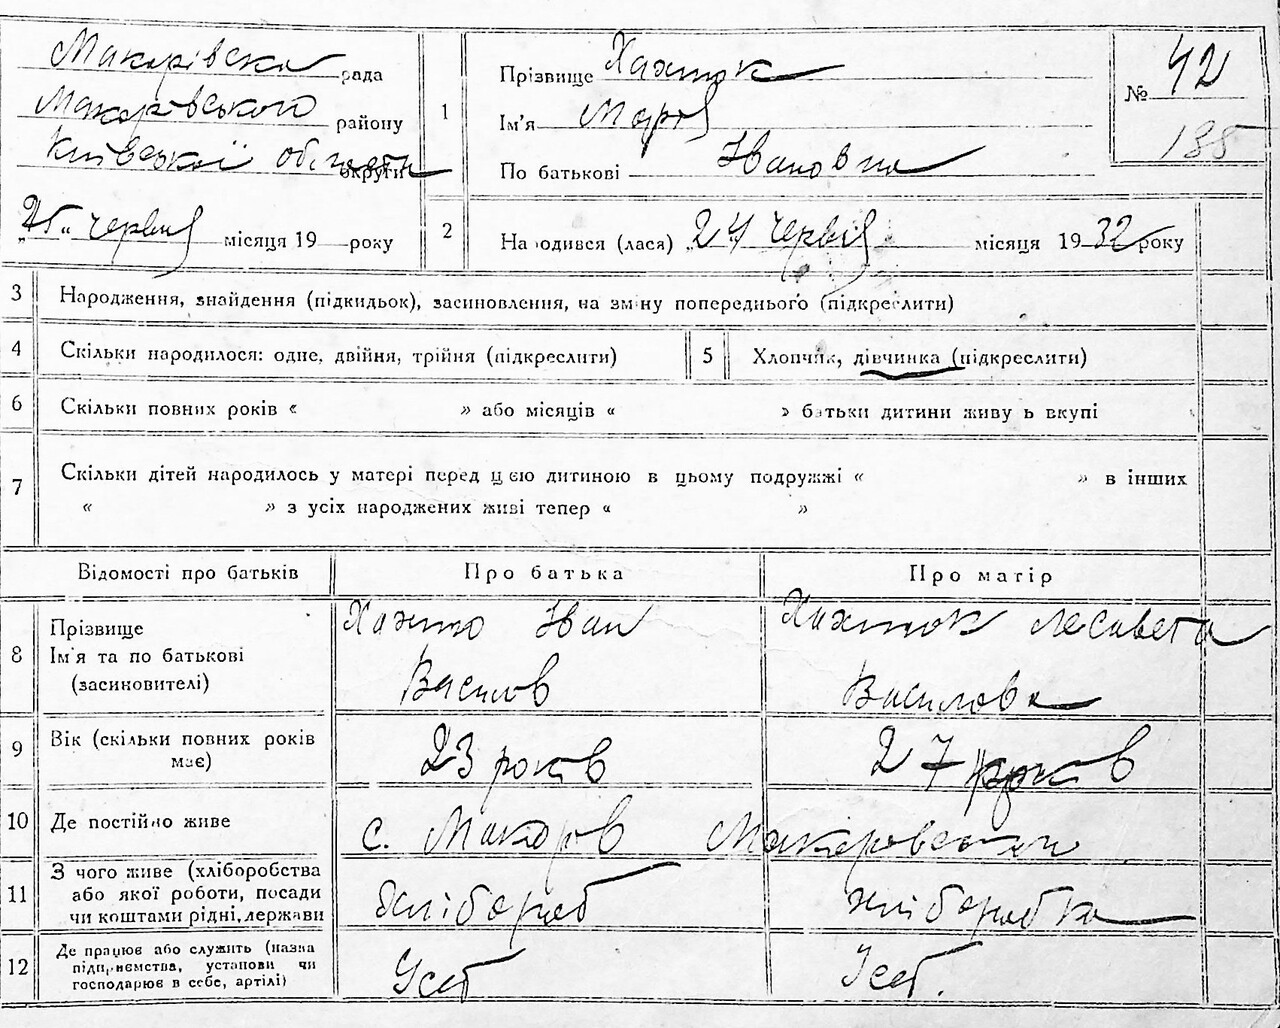 Макарівска рада
Макарівського району
Київської області округи
"25" червня місяця 19 року
1
Прізвище
Ім'я Марія
По батькові Івановна
№ 42
185
2
На одився (лася) "24 червня місяця 1932 року
3 Народження, знайдення (підкидьок), засиновлення, на зміну попереднього (підкреслити)
4 Скільки народилося: одне, двійня, трійня (підкреслити)
5 Хлопчик, дівчинка (підкреслити)
6 Скільки повних років « » або місяців « » батьки дитини живу ь вкупі
7 Скільки дітей народилось у матері перед цією дитиною в цьому подружжі « » в інших
« » з усіх народжених живі тепер « »
Відомості про батьків
Про батька
Про матір
8 Прізвище
Ім'я та по батькові
(засиновителі)
Іван
Василов
Лесавета
Василовна
9 Вік (скільки повних років
має)
23 років
27 років
10 Де постійно живе
с. Макарів Макаровський
11 З чого живе (хліборобства
або якої роботи, посади
чи коштами рідні, держави
хлібороб
хліборобка
12 Де працює або служить (назва
підприємства, установи чи
господарює в себе, артілі)